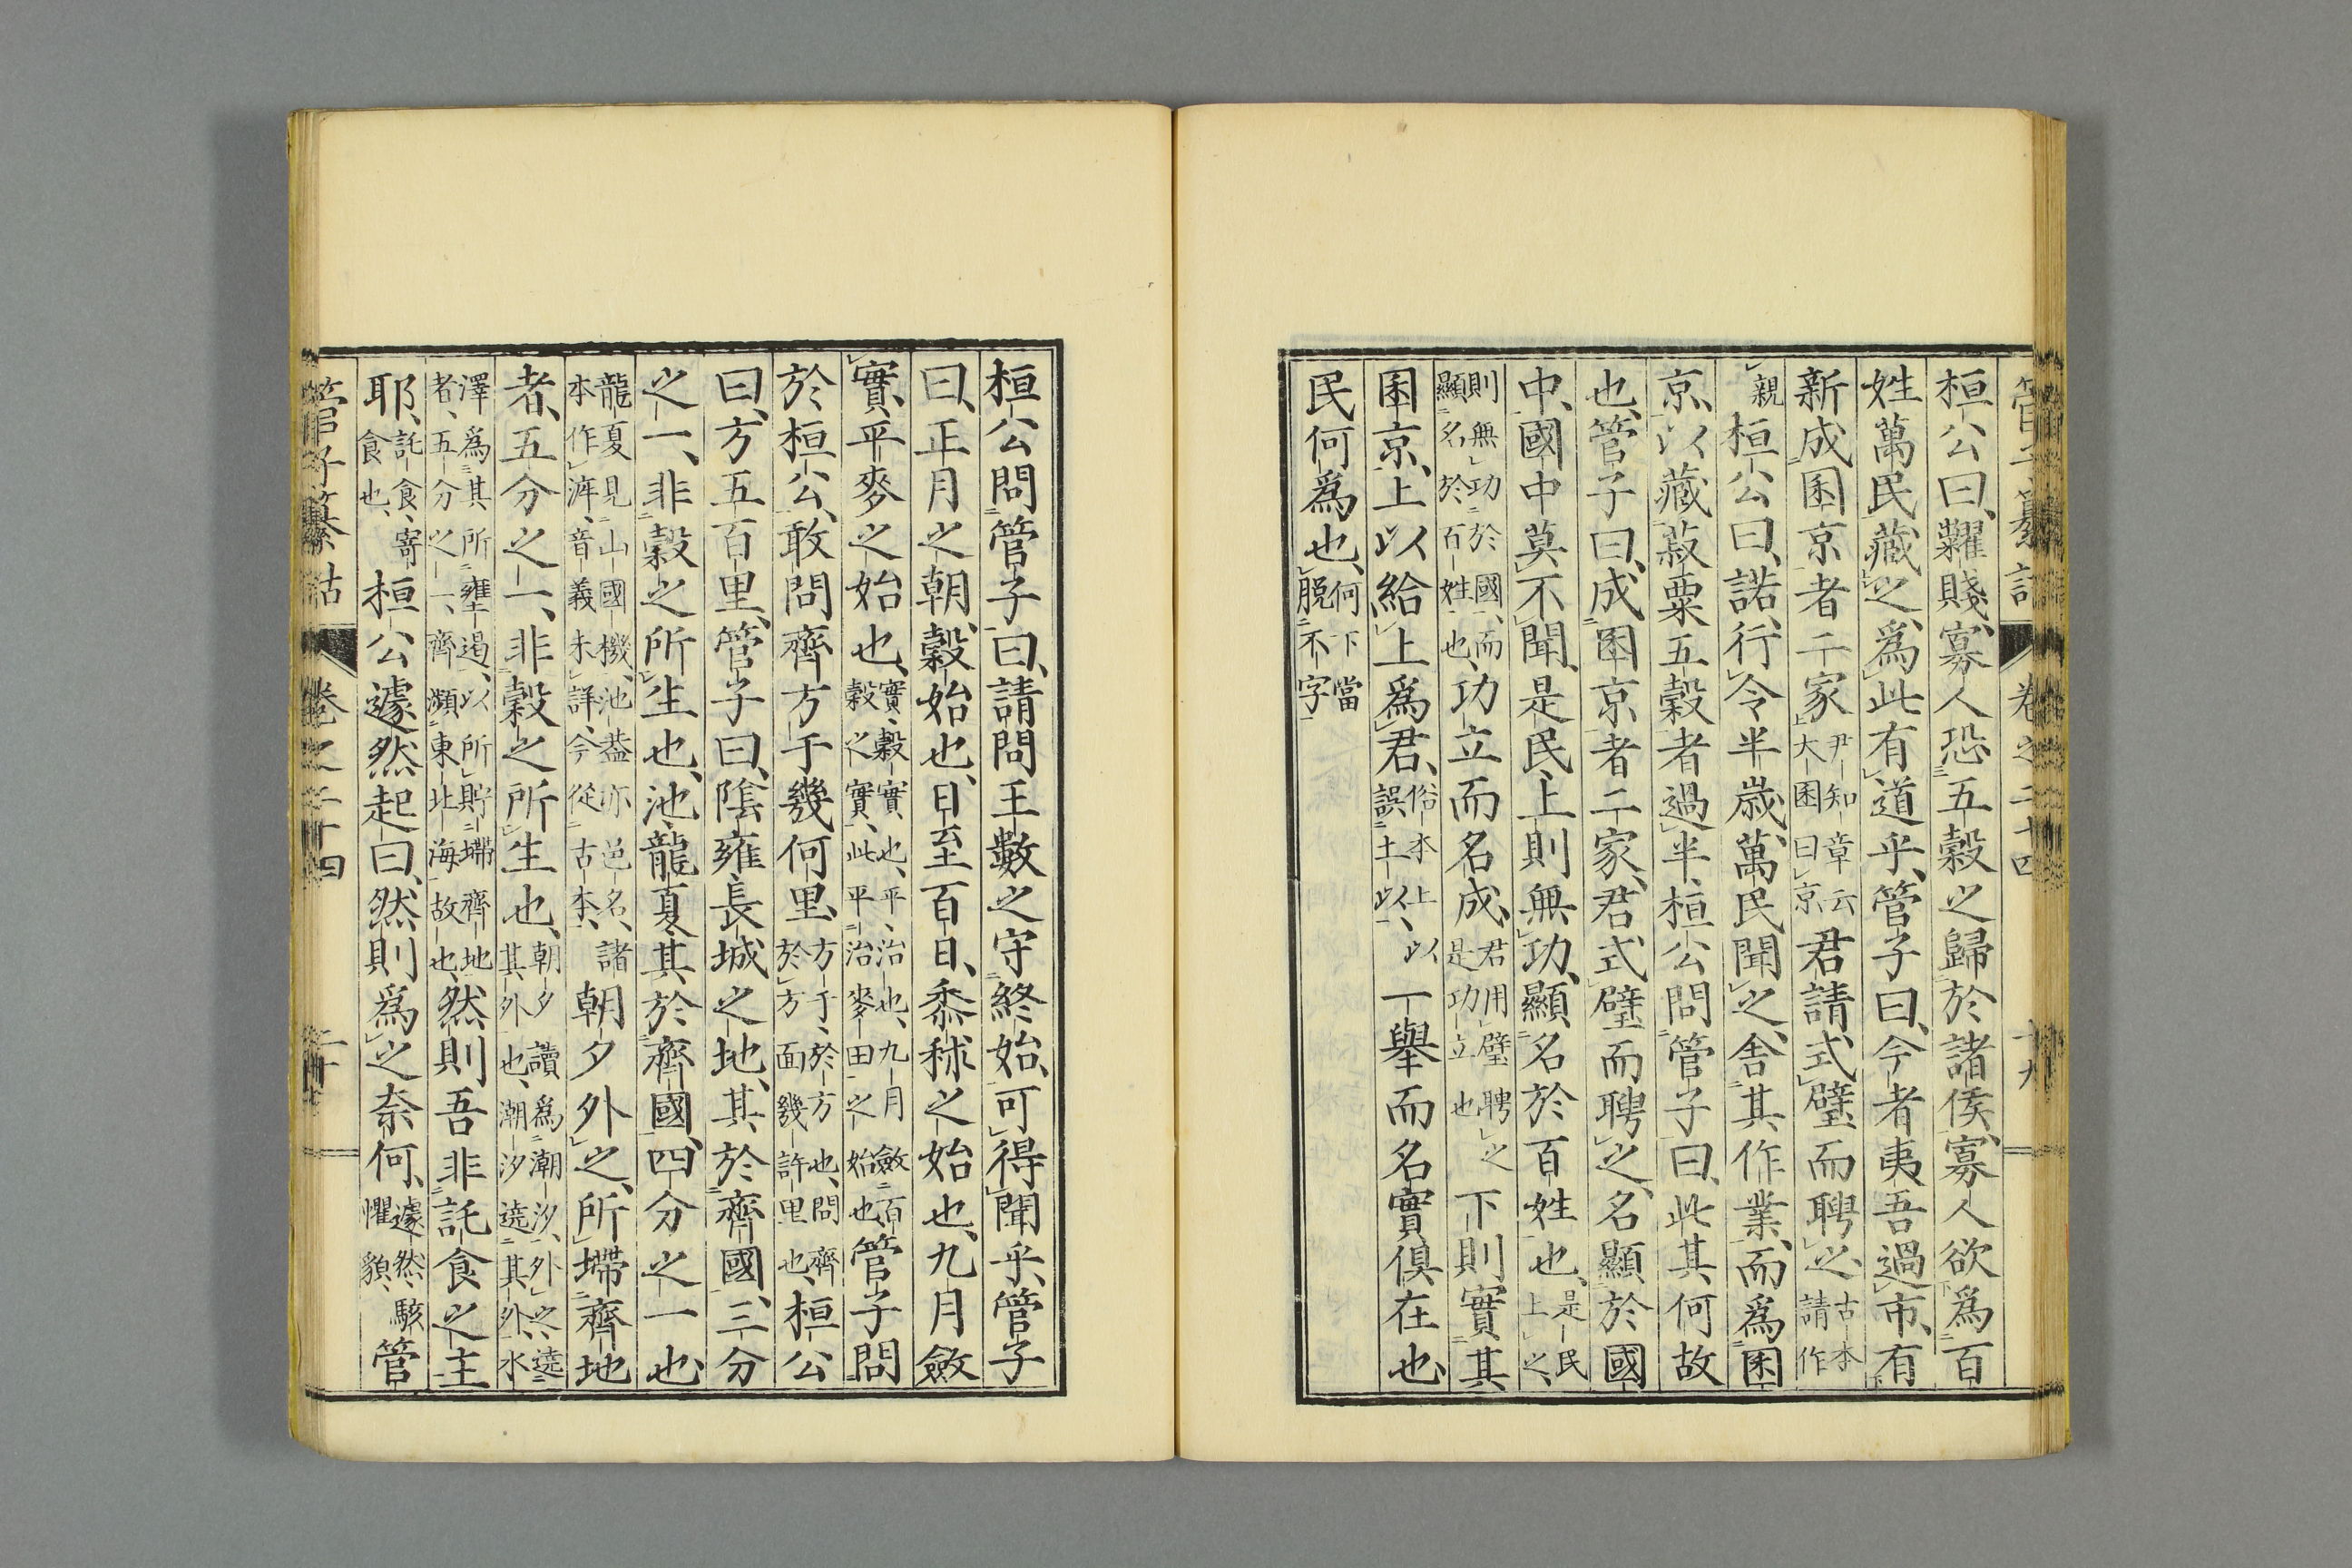 管子纂詁　卷之二十四　十九
桓公曰、糶賤、寡人恐五穀之歸於諸侯、寡人欲爲百
姓萬民藏之、爲此有道乎、管子曰、今者夷吾過市、有
新成囷京者二家、尹知章云大囷曰京君請式璧而聘之、古本請作
親桓公曰、諾、行令半歲、萬民聞之、舍其作業、而爲囷
京、以藏菽粟五穀者過半、桓公問管子曰、此其何故
也、管子曰、成囷京者二家、君式璧而聘之、名顯於國
中、國中莫不聞、是民上則無功、顯名於百姓也、是民上之、
則無功於國、而顯名於百姓也、功立而名成、君用璧聘之是功立也下則實其
囷京、上以給上爲君、俗本上以誤土以、一舉而名實俱在也
民何爲也、何下當脫不字
桓公問管子曰、請問王數之守終始、可得聞乎、管子
曰、正月之朝、穀始也、日至百日、黍秫之始也、九月斂
實、平麥之始也、實、穀實也、平、治也、九月斂穀之實、此平治麥田之始也管子問
於桓公、敢問齊方于幾何里、方于、於方也、問齊於方面幾許里也、桓公
曰、方五百里、管子曰、陰雍長城之地、其於齊國、三分
之一、非穀之所生也、池龍夏、其於齊國、四分之一也
龍夏見山國機、池蓋亦邑名、諸本作浑、音義未詳、今從古本、朝夕外之、所墆齊地
者、五分之一、非穀之所生也、朝夕讀爲潮汐、外之、遶其外也、潮汐遶其外、水
澤爲其所壅遏、以所貯墆齊地者、五分之一、齊瀕東北海故也、然則吾非託食之主
耶、託食、寄食也、桓公遽然起曰、然則爲之奈何、遽然、駭懼貌、管
管子纂詁　卷之二十四　二十